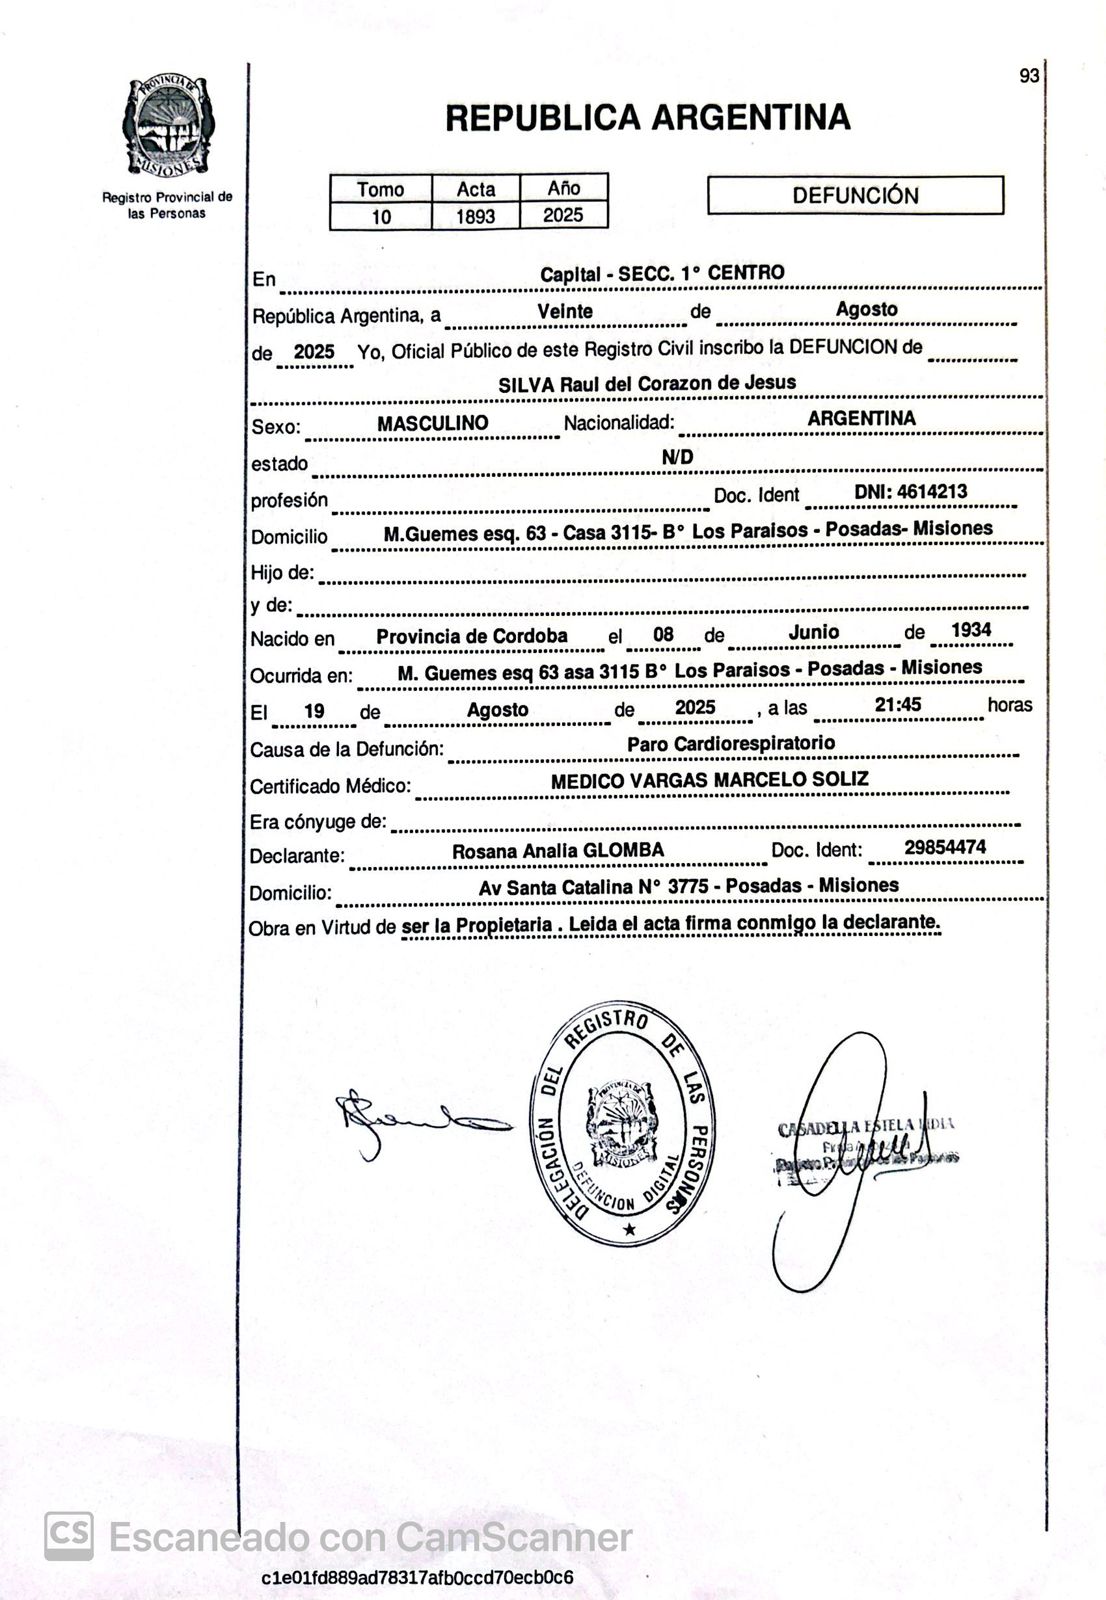 93
PROVINCIA DE
MISIONES
Registro Provincial de
las Personas
REPUBLICA ARGENTINA
Tomo Acta Año
10 1893 2025
DEFUNCIÓN
En Capital - SECC. 1° CENTRO
República Argentina, a Veinte de Agosto
de 2025 Yo, Oficial Público de este Registro Civil inscribo la DEFUNCION de
SILVA Raul del Corazon de Jesus
Sexo: MASCULINO Nacionalidad: ARGENTINA
estado N/D
profesión Doc. Ident DNI: 4614213
Domicilio M.Guemes esq. 63 - Casa 3115- B° Los Paraisos - Posadas- Misiones
Hijo de:
y de:
Nacido en Provincia de Cordoba el 08 de Junio de 1934
Ocurrida en: M. Guemes esq 63 asa 3115 B° Los Paraisos - Posadas - Misiones
El 19 de Agosto de 2025 , a las 21:45 horas
Causa de la Defunción: Paro Cardiorespiratorio
Certificado Médico: MEDICO VARGAS MARCELO SOLIZ
Era cónyuge de:
Declarante: Rosana Analia GLOMBA Doc. Ident: 29854474
Domicilio: Av Santa Catalina N° 3775 - Posadas - Misiones
Obra en Virtud de ser la Propietaria . Leida el acta firma conmigo la declarante.
DELEGACIÓN DEL REGISTRO DE LAS PERSONAS
PROVINCIA DE
MISIONES
DEFUNCION DIGITAL
CASADELLA ESTELA
CS Escaneado con CamScanner
c1e01fd889ad78317afb0ccd70ecb0c6